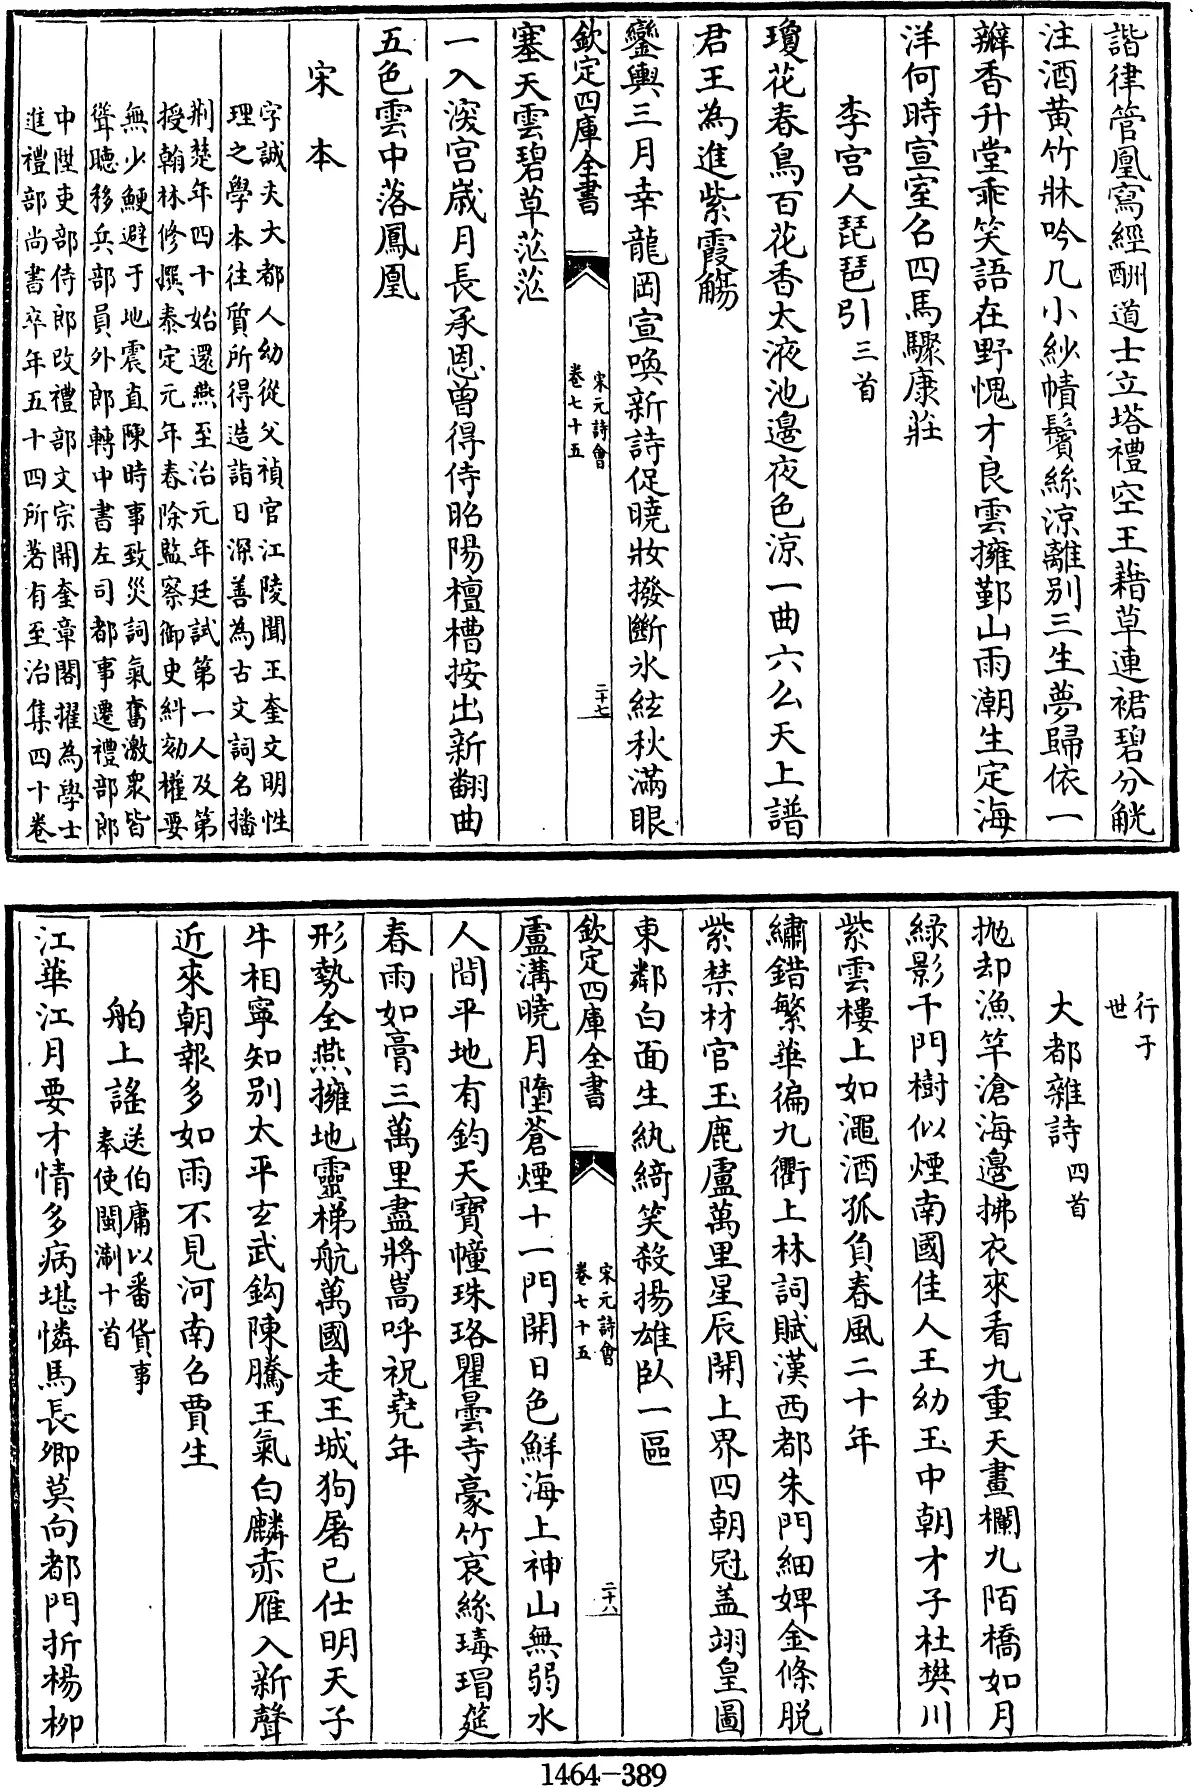 諧律管凰寫經酬道士立塔禮空王藉草連裾碧分觥
注酒黄竹牀吟几小紗幘鬢絲涼離别三生夢歸依一
瓣香升堂乖笑語在野愧才良雲擁鄞山雨潮生定海
洋何時宣室召四馬驟康莊
李宫人琵琶引三首
瓊花春鳥百花香太液池邊夜色涼一曲六么天上譜
君王為進紫霞觴
鑾輿三月幸龍岡宣喚新詩促曉妝撥斷氷絃秋滿眼
欽定四庫全書
宋元詩會
卷七十五
二十七
塞天雲碧草茫茫
一入深宫歲月長承恩曾得侍昭陽檀槽按出新翻曲
五色雲中落鳳凰
宋本
字誠夫大都人幼從父禎官江陵聞王奎文明性
理之學本往質所得造詣日深善為古文詞名播
荆楚年四十始還燕至治元年廷試第一人及第
授翰林修撰泰定元年春除監察御史糾劾權要
無少鯁避于地震直陳時事致災詞氣奮激衆皆
聳聽移兵部員外郎轉中書左司都事遷禮部郎
中陞吏部侍郎改禮部文宗開奎章閣擢為學士
進禮部尚書卒年五十四所著有至治集四十卷
行于
世
大都雜詩四首
抛却漁竿滄海邊拂衣來看九重天畫欄九陌橋如月
緑影千門樹似煙南國佳人王幼玉中朝才子杜樊川
紫雲樓上如澠酒孤負春風二十年
繡錯繁華徧九衢上林詞賦漢西都朱門細婢金條脱
紫禁材官玉鹿盧萬里星辰開上界四朝冠盖翊皇圖
東鄰白面生紈綺笑殺揚雄臥一區
欽定四庫全書
宋元詩會
卷七十五
二十八
盧溝曉月墮蒼煙十一門開日色鮮海上神山無弱水
人間平地有鈞天寶幢珠珞瞿曇寺豪竹哀絲瑇瑁筵
春雨如膏三萬里盡將嵩呼祝堯年
形勢全燕擁地靈梯航萬國走王城狗屠已仕明天子
牛相寧知别太平玄武鈎陳騰王氣白麟赤雁入新聲
近來朝報多如雨不見河南召賈生
舶上謠送伯庸以番貨事
奉使閩淛十首
江華江月要才情多病堪憐馬長卿莫向都門折楊柳
1464-389